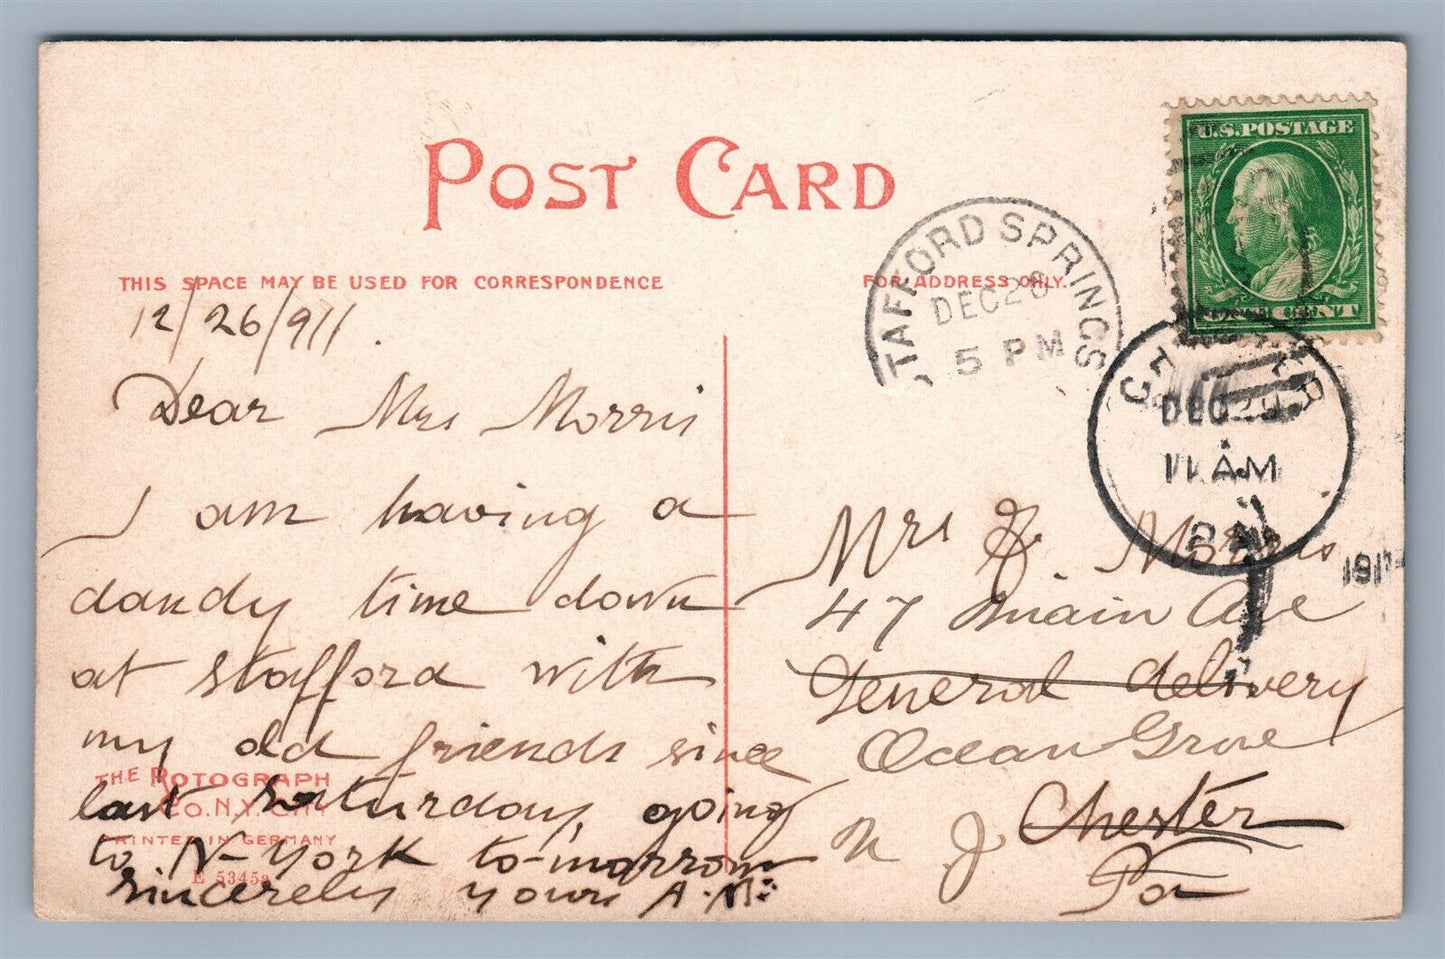 POST CARD
THIS SPACE MAY BE USED FOR CORRESPONDENCE
FOR ADDRESS ONLY.
U.S. POSTAGE
CENT
STAFFORD SPRINGS
DEC 26
5 PM
DEC
11 AM
PA
191
12/26/911.
Dear Mrs Morris
I am having a
dandy time down
at Stafford with
my old friends since
last Saturday, going
to N-York to-morrow
sincerely yours A.M.
THE ROTOGRAPH
CO. N.Y. CITY
PRINTED IN GERMANY
E 5345a
Mrs J. Morris
47 Main Ave
General delivery
Ocean Grove
N J Chester
Pa